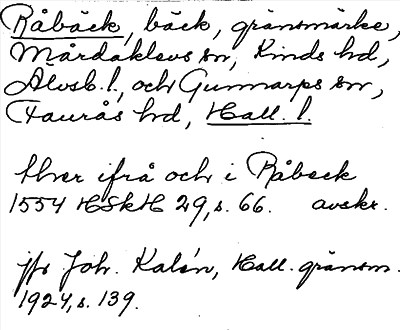 Råbäck, bäck, gränsmärke,
Mårdaklevs sn, Kinds hd,
Älvsb. l., och Gunnarps sn,
Faurås hd, Hall. l.
thver ifrå och i Råbeck
1554 HSkH 29, s. 66. avskr.
jfr Joh. Kalén, Hall. gränsm.
1924, s. 139.